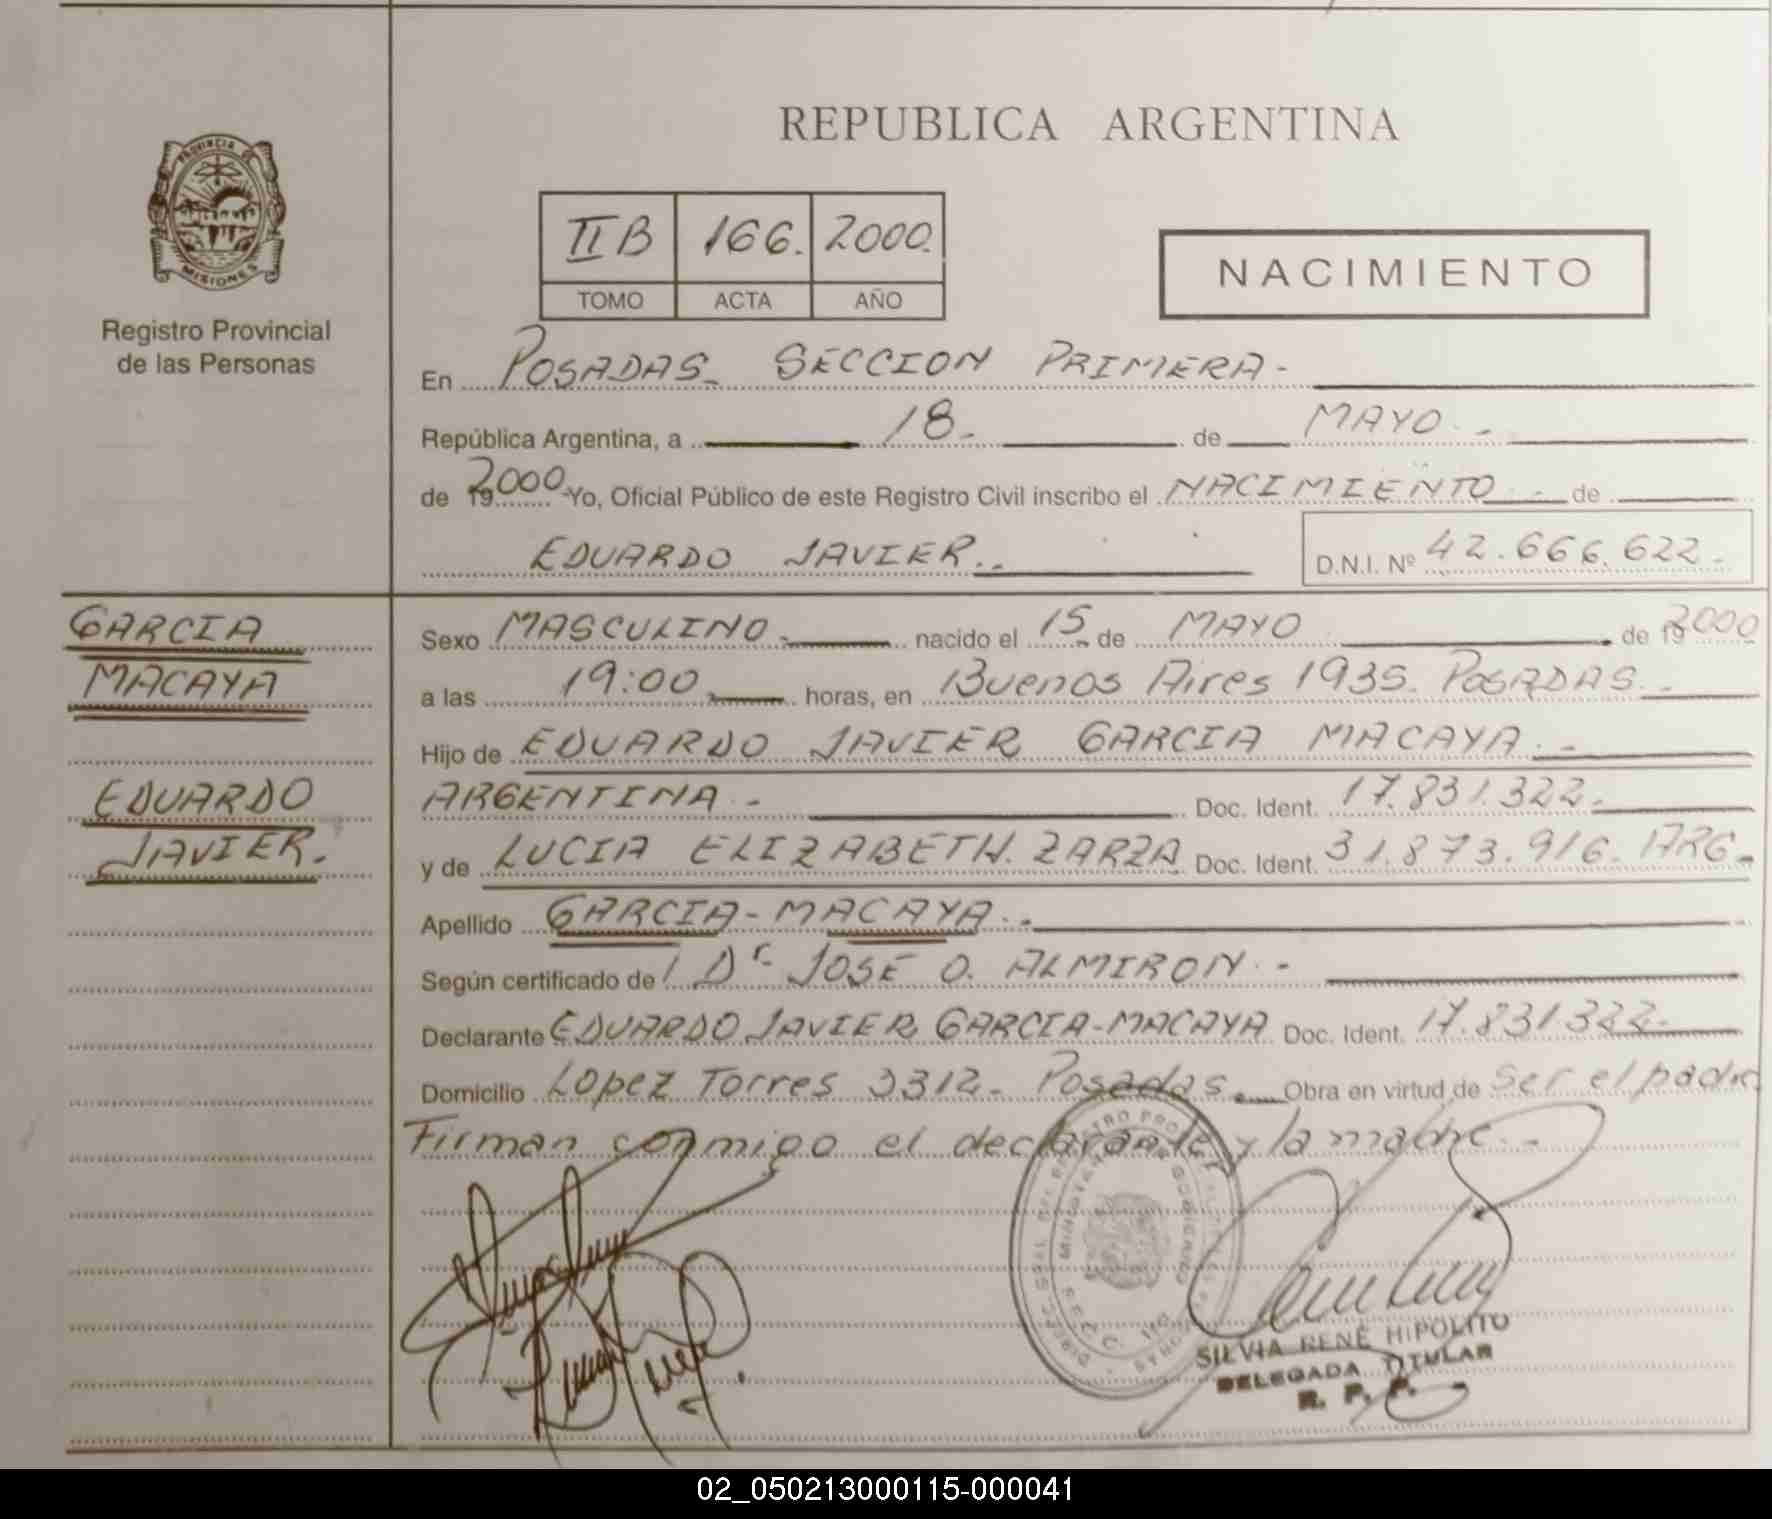 REPUBLICA ARGENTINA
PROVINCIA DE
MISIONES
Registro Provincial
de las Personas
II B 166. 2000.
TOMO ACTA AÑO
NACIMIENTO
En POSADAS_ SECCION PRIMERA-
República Argentina, a 18- de MAYO.-
de 192000 Yo, Oficial Público de este Registro Civil inscribo el NACIMIENTO.- de
EDUARDO JAVIER..
D.N.I. Nº 42.666.622-
GARCIA
MACAYA
EDUARDO
JAVIER.
Sexo MASCULINO.- nacido el 15 de MAYO de 192000
a las 19:00 horas, en Buenos Aires 1935. POSADAS.-
Hijo de EDUARDO JAVIER GARCIA MACAYA.-
ARGENTINA.- Doc. Ident. 17.831.322.-
y de LUCIA ELIZABETH. ZARZA Doc. Ident. 31.873.916. ARG.-
Apellido GARCIA-MACAYA.-
Según certificado de l Dr. JOSE O. ALMIRON.-
Declarante EDUARDO JAVIER GARCIA-MACAYA Doc. Ident. 17.831322-
Domicilio Lopez Torres 3312- Posadas.- Obra en virtud de Ser el padre
Firman conmigo el declarante y la madre.-
SILVIA RENÉ HIPOLITO
DELEGADA TITULAR
R. P. P.
02_050213000115-000041